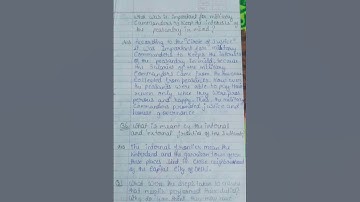 Q5 Why was it important for military
commanders to keep the interests of
the peasantry in mind?
Ans According to the "Circle of Justice"
it was important for military
commanders to keep the interests
of the peasantry in mind because
the salaries of the military
commanders came from the revenue
collected from peasants. However
the peasants were able to pay their
revenue only when they were
and happy. Thus the military
commanders promoted justice and
honest governance
Q6 What is meant by the internal
and external frontiers of the Sultanate
Ans The internal frontier mean the
hinterland and the garrison towns
that placed in close neighbourhood
of the capital city of Delhi.
Q7 What were the steps taken to ensure
that muqtis performed their duties
Why do you think they may have